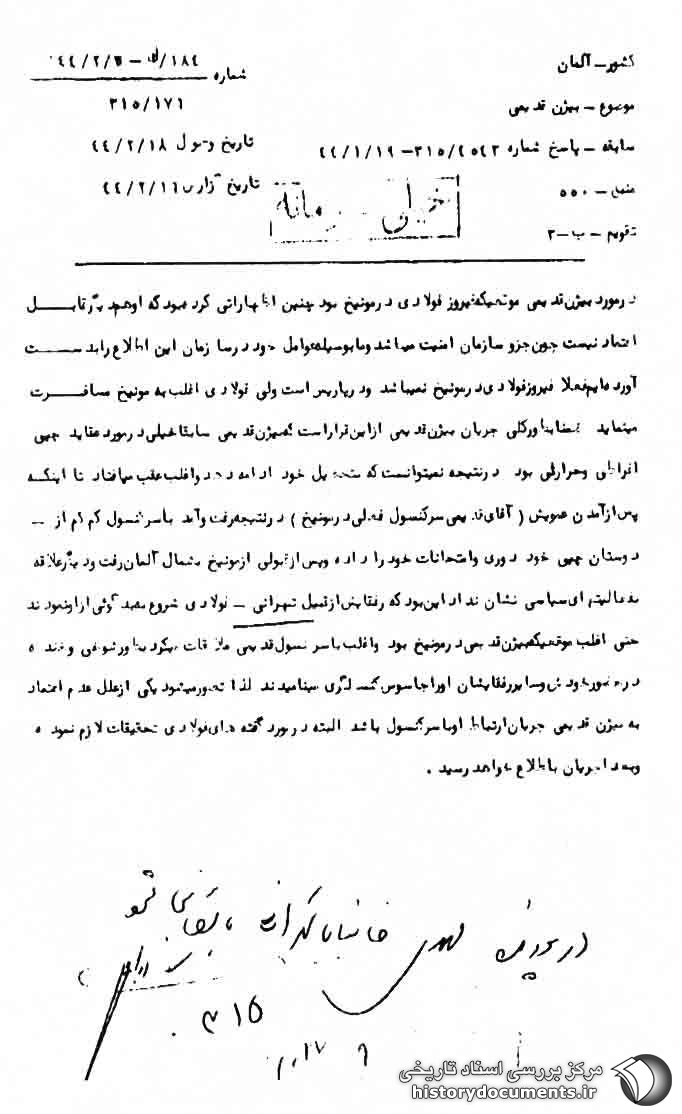 کشور – آلمان
شماره ۱۸۴/
موضوع – بیژن قدیمی
۳۱۵/۱۷۶
سابقه – پاسخ شماره ۳۱۵/۲۵۴۳ – ۴۴/۱/۱۹
تاریخ وصول ۴۴/۲/۱۸
منبع – ۵۵۰
تاریخ گزارش ۴۴/۲/۱۱
تقویم – ب – ۳
خیلی محرمانه
در مورد بیژن قدیمی موقعیکه فیروز فولادی در مونیخ بود چنین اظهاراتی کرده بود که او هم دیگر قابل
اعتماد نیست چون جزو سازمان امنیت میباشد و ما بوسیله عوامل خود در سازمان این اطلاع را بدست
آورده‌ایم فعلا فیروز فولادی در مونیخ نمیباشد و در پاریس است ولی فولادی اغلب به مونیخ مسافرت
مینماید ضمنا بطور کلی جریان بیژن قدیمی از این قرار است که بیژن قدیمی سابقا خیلی در مورد عقاید چپی
افراطی و حرارتی بود در نتیجه نمیتوانست که متحصیل خود ادامه دهد و اغلب عقب میافتاد تا اینکه
پس از آمدن عمویش ( آقای قدیمی سرکنسول فعلی در مونیخ ) در نتیجه رفت و آمد با سرکنسول کم کم از –
دوستان چپی خود دوری و امتحانات خود را داده و پس از قبولی از مونیخ بشمال آلمان رفت و دیگر علاقه
بفعالیتهای سیاسی نشان نداد این بود که رفقایش از قبیل تهرانی – فولادی شروع ببدگوئی از او نمودند
حتی اغلب موقعیکه بیژن قدیمی در مونیخ بود و اغلب با سرکنسول قدیمی ملاقات میکرد بطور شوخی و خنده
در حضور خودش و سایر رفقایشان او را جاسوس کنسولگری مینامیدند لذا تصور میشود یکی از علل عدم اعتماد
به بیژن قدیمی جریان ارتباط او با سرکنسول باشد البته در مورد گفته های فولادی تحقیقات لازم نموده
و بعدا جریان باطلاع خواهد رسید .
۳۱۵
مرکز بررسی اسناد تاریخی
historydocuments.ir